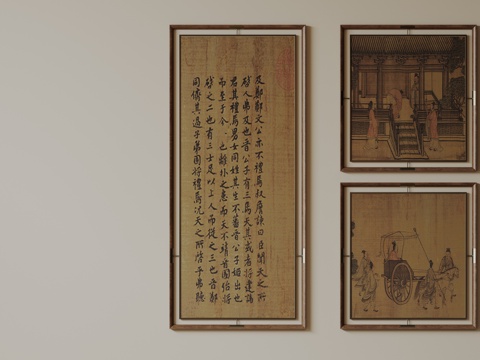 及鄭鄭文公亦不禮焉叔詹諫曰臣聞天之所
啟人弗及也晉公子有三焉天其或者將建諸
君其禮焉男女同姓其生不蕃晉公子姬出也
而至于今一也離外之患而天不靖晉國殆將
啟之二也有三士足以上人而從之三也晉鄭
同儕其過子弟固將禮焉況天之所啟乎弗聽